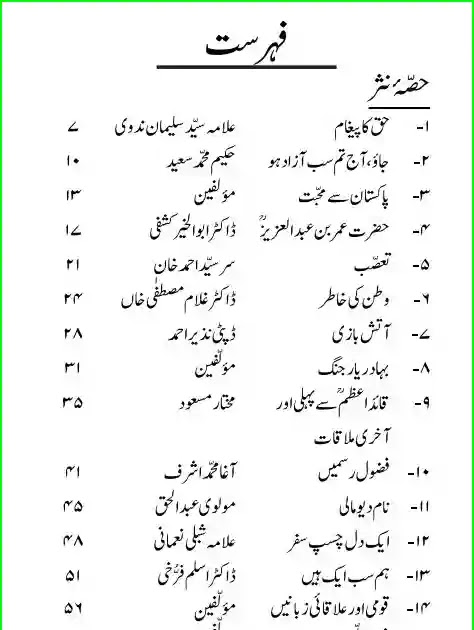 فہرست
حصّۂ نثر
۱- حق کا پیغام علامہ سیّد سلیمان ندوی ۷
۲- جاؤ، آج تم سب آزاد ہو حکیم محمّد سعید ۱۰
۳- پاکستان سے محبّت مؤلّفین ۱۳
۴- حضرت عمر بن عبدالعزیزؒ ڈاکٹر ابوالخیر کشفی ۱۷
۵- تعصّب سر سیّد احمد خان ۲۱
۶- وطن کی خاطر ڈاکٹر غلام مصطفٰی خاں ۲۴
۷- آتش بازی ڈپٹی نذیر احمد ۲۸
۸- بہادر یار جنگ مؤلّفین ۳۱
۹- قائداعظمؒ سے پہلی اور مختار مسعود ۳۵
آخری ملاقات
۱۰- فضول رسمیں آغا محمّد اشرف ۴۱
۱۱- نام دیو مالی مولوی عبدالحق ۴۵
۱۲- ایک دل چسپ سفر علامہ شبلی نعمانی ۴۸
۱۳- ہم سب ایک ہیں ڈاکٹر اسلم فرّخی ۵۱
۱۴- قومی اور علاقائی زبانیں مؤلّفین ۵۶